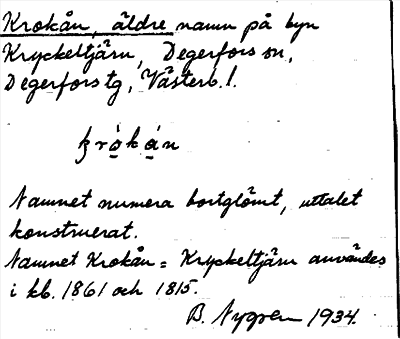 Krokån, äldre namn på byn
Kryckeltjärn, Degerfors sn,
Degerfors tg, Västerb. l.
krȯ́kạ́n
Namnet numera bortglömt, uttalet
konstruerat.
Namnet Krokån = Kryckeltjärn användes
i kb. 1861 och 1815.
B. Nygren 1934.